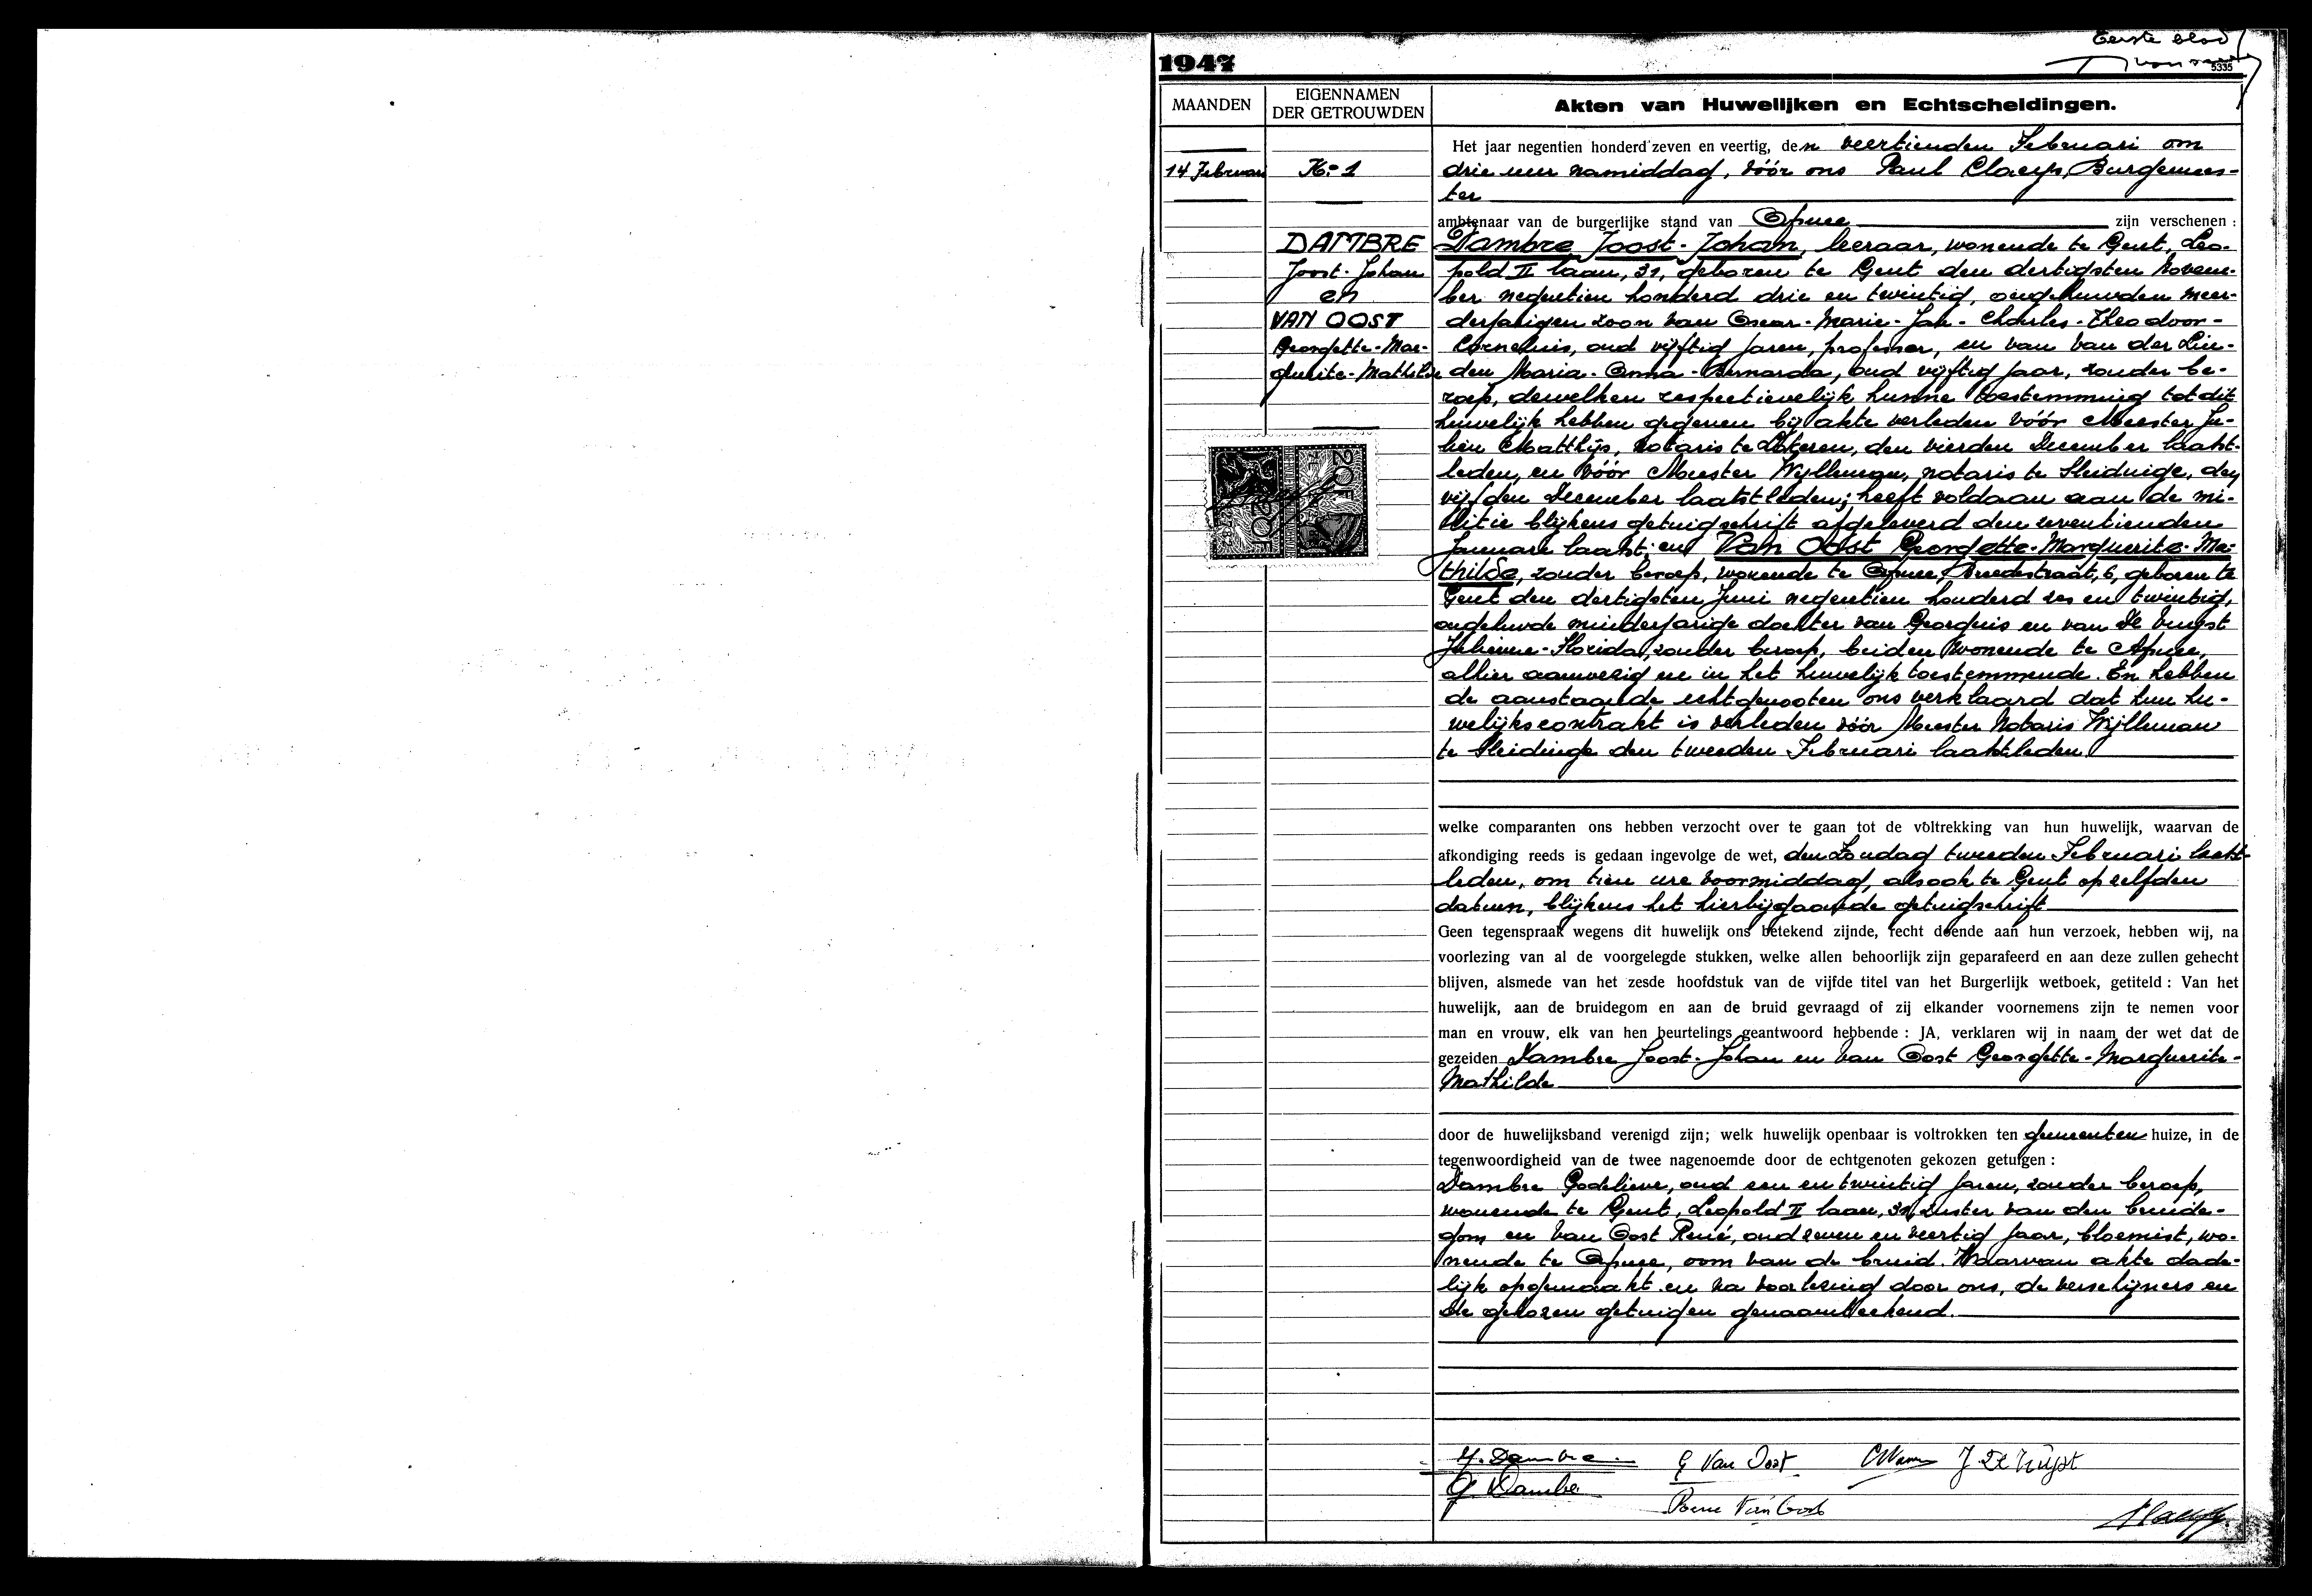 Eerste blad
1947
5335
MAANDEN
EIGENNAMEN
DER GETROUWDEN
Akten van Huwelijken en Echtscheidingen.
14 Februari
No 1
DAMBRE
Joost-Johan
en
VAN OOST
Georgette-Mar-
guerite-Mathilde
20F
20F
Het jaar negentien honderd zeven en veertig, den veertienden Februari om
drie uur namiddag, vóór ons Paul Claeys, Burgemees-
ter
ambtenaar van de burgerlijke stand van zijn verschenen :
Dambre Joost-Johan, leeraar, wonende te Gent, Leo-
pold II laan, 31, geboren te Gent den dertigsten Novem-
ber negentien honderd drie en twintig, ongehuwden meer-
derjarigen zoon van Oscar-Marie-Jan-Charles-Theodoor-
Cornelius, oud vijftig jaren, professor, en van Van der Lin-
den Maria-Anna-Bernarda, oud vijftig jaar, zonder be-
roep, dewelken respectievelijk hunne toestemming tot dit
huwelijk hebben gegeven bij akte verleden vóór Meester Ju-
lien Matthijs, notaris te den vierden December laatst-
leden, en vóór Meester Wylleman, notaris te Sleidinge, den
vijfden December laatstleden; heeft voldaan aan de mi-
litie blijkens getuigschrift afgeleverd den zeventienden
Januari laatst; en Van Oost Georgette-Marguerite-Ma-
thilde, zonder beroep, wonende te 6, geboren te
Gent den dertigsten Juni negentien honderd zes en twintig,
ongehuwde minderjarige dochter van Georgius en van De Vuyst
Florida, zonder beroep, beiden wonende te
alhier aanwezig en in het huwelijk toestemmende. En hebben
de aanstaande echtgenooten ons verklaard dat hun hu-
welijkscontrakt is verleden vóór Meester Notaris Wylleman
te Sleidinge den tweeden Februari laatstleden
welke comparanten ons hebben verzocht over te gaan tot de voltrekking van hun huwelijk, waarvan de
afkondiging reeds is gedaan ingevolge de wet, den Zondag tweeden Februari laatst-
leden, om tien ure voormiddag, alsook te Gent op zelfden
datum, blijkens het hierbijgaande getuigschrift
Geen tegenspraak wegens dit huwelijk ons betekend zijnde, recht doende aan hun verzoek, hebben wij, na
voorlezing van al de voorgelegde stukken, welke allen behoorlijk zijn geparafeerd en aan deze zullen gehecht
blijven, alsmede van het zesde hoofdstuk van de vijfde titel van het Burgerlijk wetboek, getiteld : Van het
huwelijk, aan de bruidegom en aan de bruid gevraagd of zij elkander voornemens zijn te nemen voor
man en vrouw, elk van hen beurtelings geantwoord hebbende : JA, verklaren wij in naam der wet dat de
gezeiden Dambre Joost-Johan en Van Oost Georgette-Marguerite-
Mathilde
door de huwelijksband verenigd zijn; welk huwelijk openbaar is voltrokken ten gemeenten huize, in de
tegenwoordigheid van de twee nagenoemde door de echtgenoten gekozen getuigen :
Dambre Godelieve, oud een en twintig jaren, zonder beroep,
wonende te Gent, Leopold II laan, 31, zuster van den bruide-
gom en Van Oost René, oud zeven en veertig jaar, bloemist, wo-
nende te oom van de bruid. Waarvan akte dade-
lijk opgemaakt en na voorlezing door ons, de verschijners en
de gekozen getuigen genaamteekend.
J. Dambre G Van Oost J De Vuyst
G Dambre
Rene Van Oost
Claeys